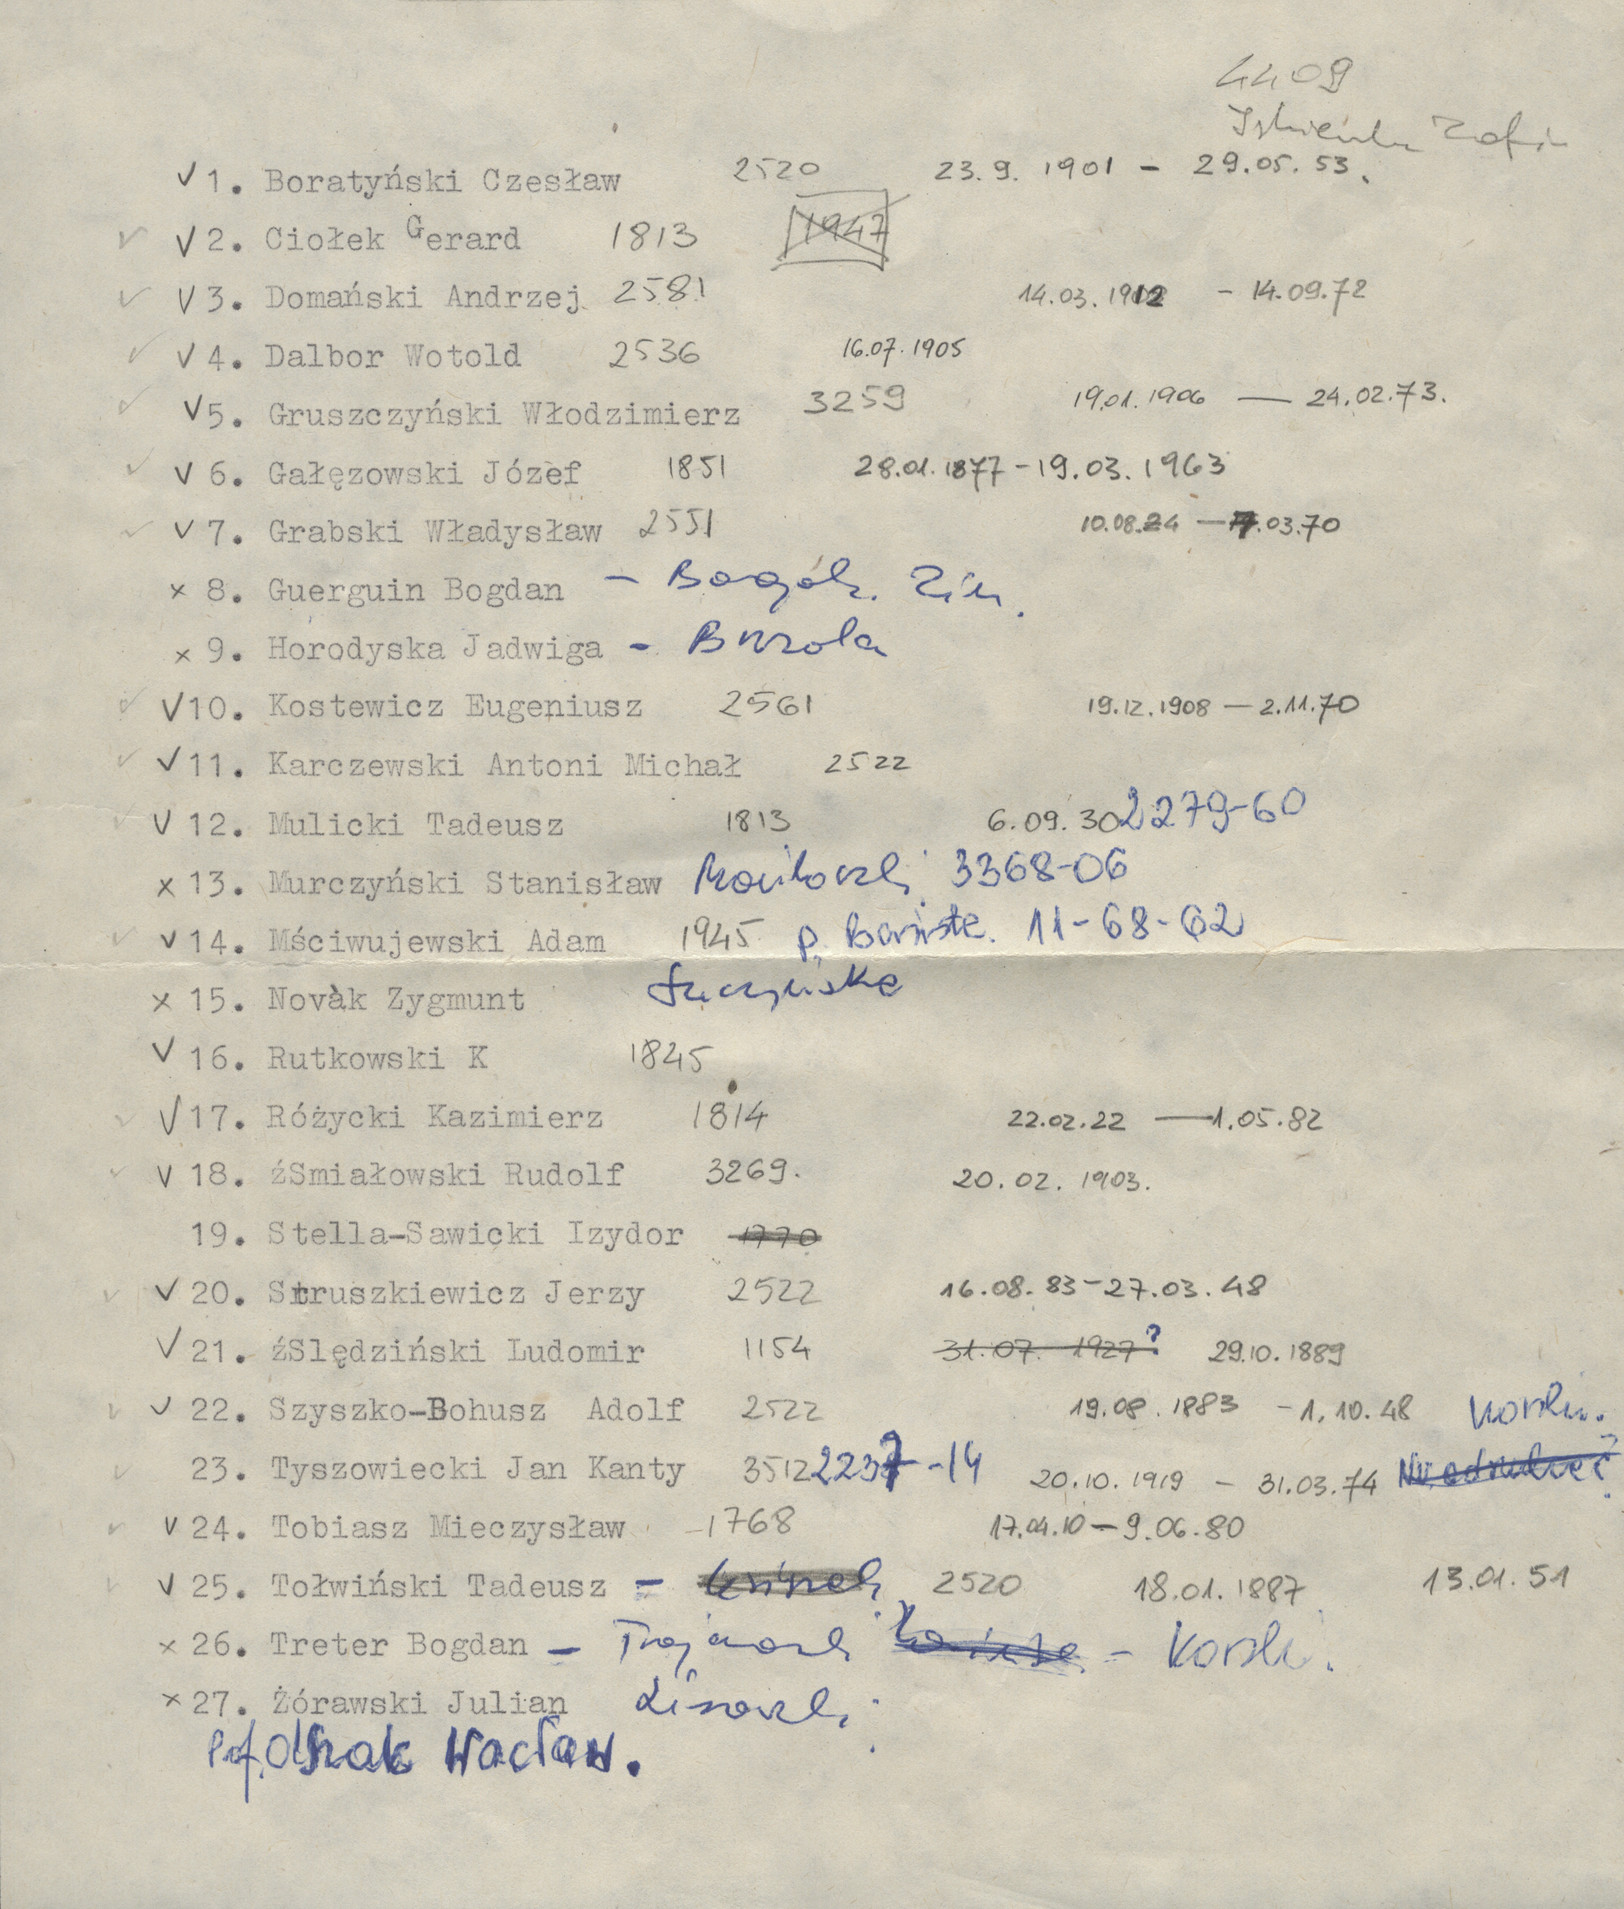 4409
Zofia
√ 1. Boratyński Czesław 2520 23.9. 1901 - 29.05. 53.
√ 2. Ciołek Gerard 1813 1947
√ 3. Domański Andrzej 2581 14.03. 1912 - 14.09.72
√ 4. Dalbor Wotold 2536 16.07.1905
√ 5. Gruszczyński Włodzimierz 3259 19.01. 1906 — 24.02.73.
√ 6. Gałęzowski Józef 1851 28.01.1877 - 19.03. 1963
√ 7. Grabski Władysław 2551 10.08.24 — .03.70
x 8. Guerguin Bogdan –
x 9. Horodyska Jadwiga - Burzola
√ 10. Kostewicz Eugeniusz 2561 19.12.1908 — 2.11.70
√ 11. Karczewski Antoni Michał 2522
√ 12. Mulicki Tadeusz 1813 6.09.30 2279-60
x 13. Murczyński Stanisław 3368-06
√ 14. Mściwujewski Adam 1945 p. 11-68-62
x 15. Novàk Zygmunt
√ 16. Rutkowski K 1845
√ 17. Różycki Kazimierz 1814 22.02.22 — 1.05.82
√ 18. źSmiałowski Rudolf 3269. 20.02. 1903.
19. Stella-Sawicki Izydor 1770
√ 20. Struszkiewicz Jerzy 2522 16.08.83 - 27.03.48
√ 21. źSlędziński Ludomir 1154 31.07. 1927 ? 29.10.1889
√ 22. Szyszko-Bohusz Adolf 2522 19.08.1883 - 1.10.48
23. Tyszowiecki Jan Kanty 3512 2237-14 20.10.1919 - 31.03.74
√ 24. Tobiasz Mieczysław 1768 17.04.10 — 9.06.80
√ 25. Tołwiński Tadeusz – 2520 18.01.1887 13.01.51
x 26. Treter Bogdan –
x 27. Żórawski Julian
Prof. Wacław.